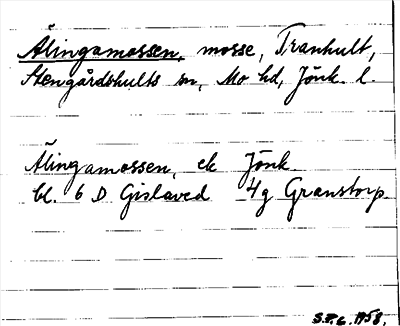 Älingamossen, mosse, Tranhult,
Stengårdshults sn, Mo hd, Jönk. l.
Älingamossen, ek Jönk.
bl. 6 D Gislaved 4g Granstorp.
1958.